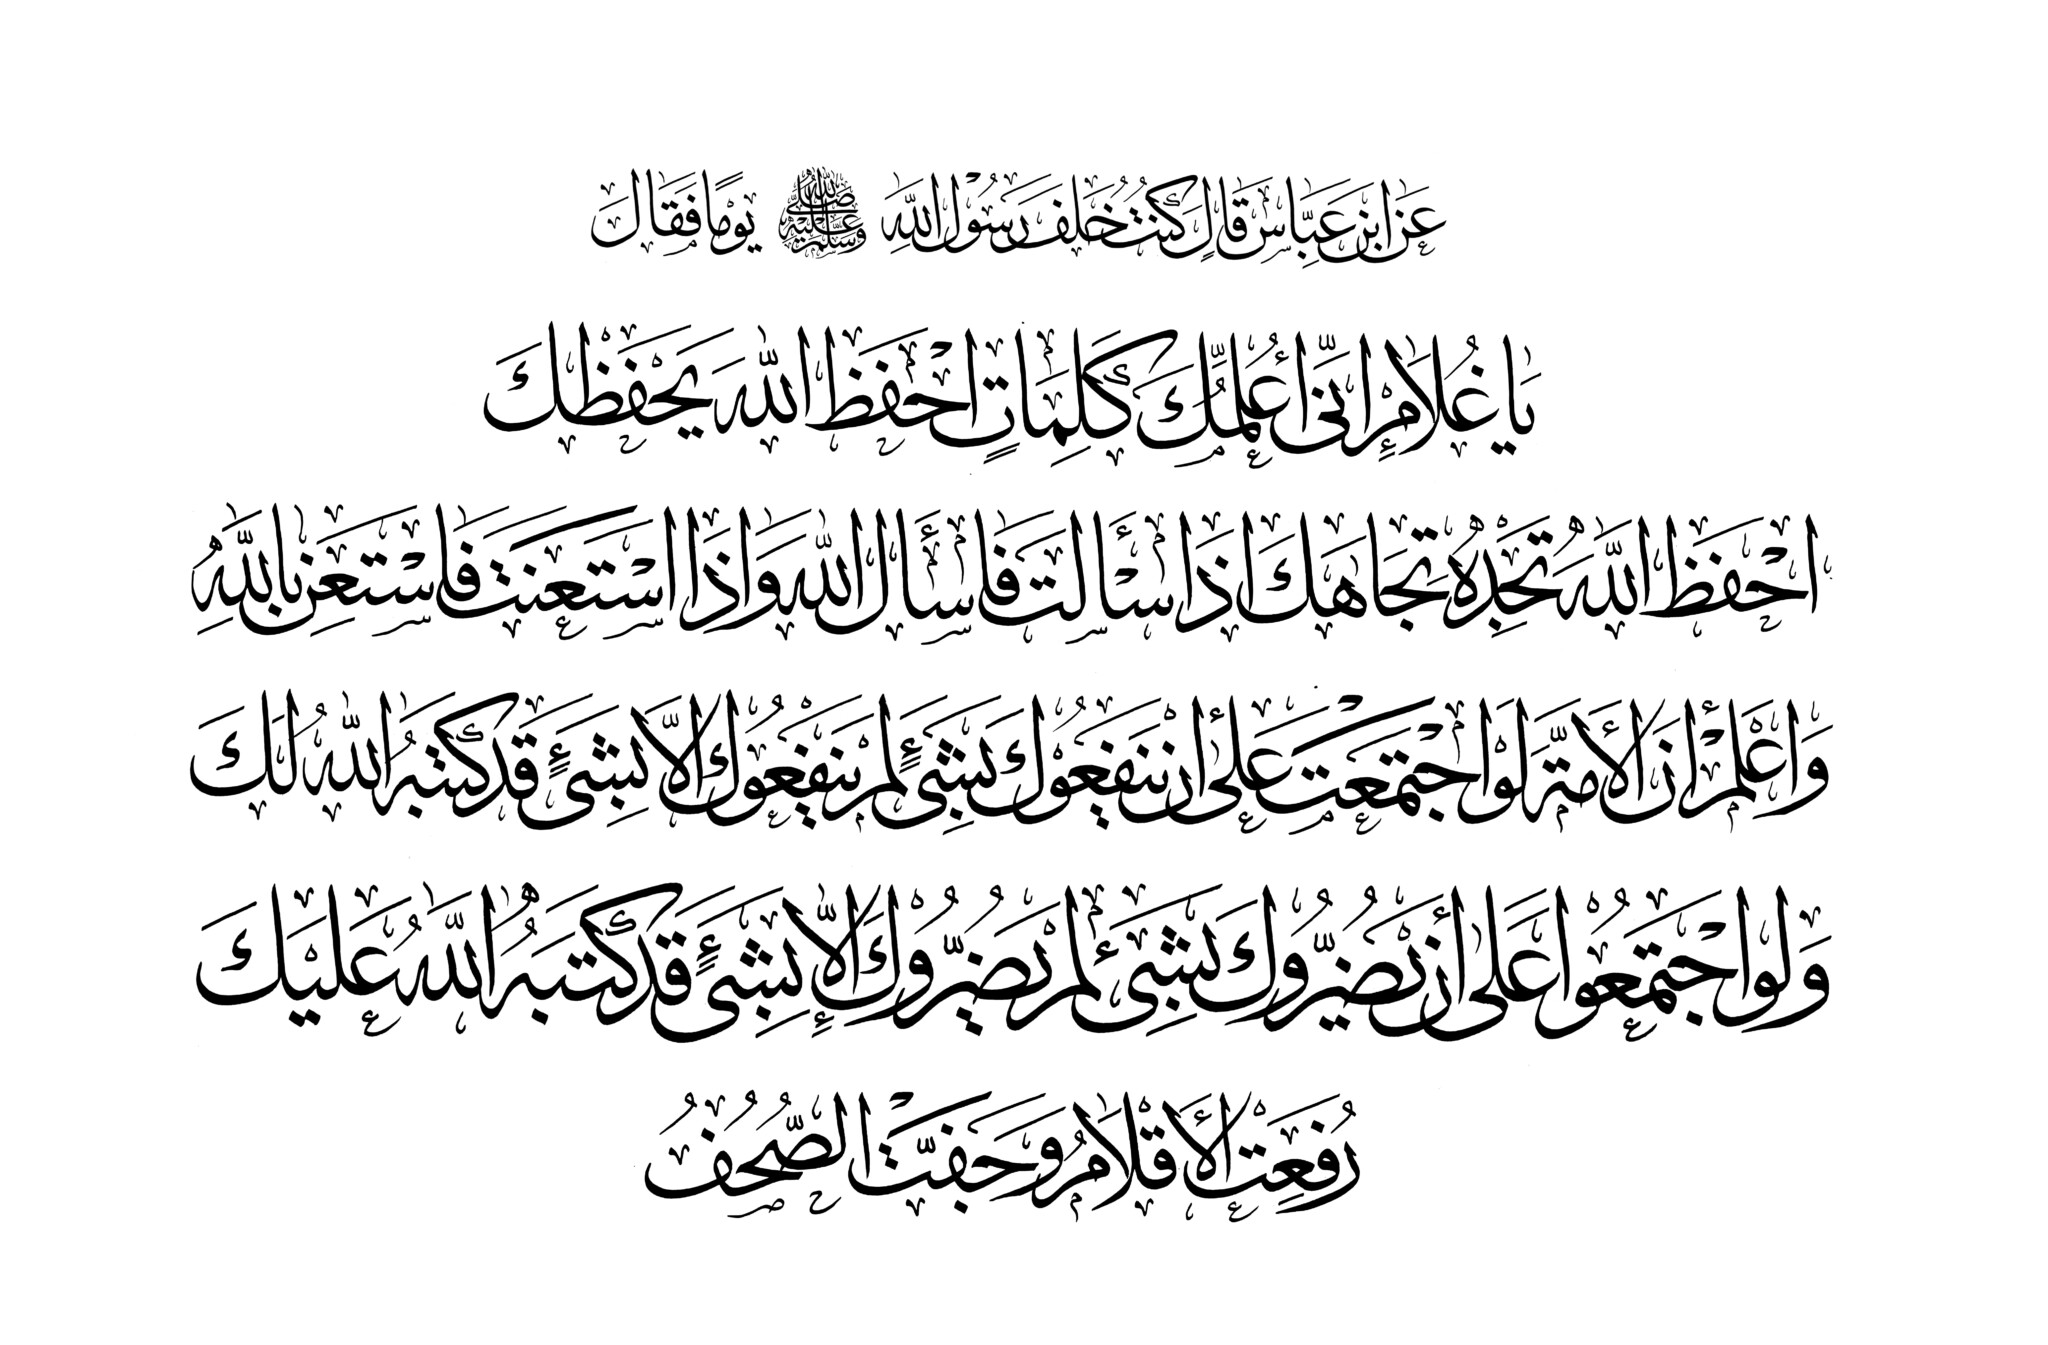 عَنِ ابْنِ عَبَّاسٍ قَالَ كُنْتُ خَلْفَ رَسُوْلِ اللَّهِ صَلَّى اللَّه عَلَيْهِ وَسَلَّمَ يَوْمًا فَقَالَ
يَا غُلَامُ إِنِّي أُعَلِّمُكَ كَلِمَاتٍ احْفَظِ اللَّهَ يَحْفَظْكَ
احْفَظِ اللَّهَ تَجِدْهُ تُجَاهَكَ اِذَا سَأَلْتَ فَاسْأَلِ اللَّهَ وَاِذَا اسْتَعَنْتَ فَاسْتَعِنْ بِاللَّهِ
وَاعْلَمْ أَنَّ الْأُمَّةَ لَوْ اجْتَمَعَتْ عَلَى أَنْ يَنْفَعُوْكَ بِشَيْءٍ لَمْ يَنْفَعُوْكَ إِلَّا بِشَيْءٍ قَدْ كَتَبَهُ اللَّهُ لَكَ
وَلَوْ اجْتَمَعُوْا عَلَى أَنْ يَضُرُّوْكَ بِشَيْءٍ لَمْ يَضُرُّوْكَ إِلَّا بِشَيْءٍ قَدْ كَتَبَهُ اللَّهُ عَلَيْكَ
رُفِعَتِ الْأَقْلَامُ وَجَفَّتْ الصُّحُفُ